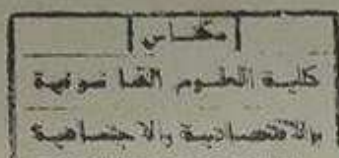 مكناس
كلية العلوم القانونية
والاقتصادية والاجتماعية